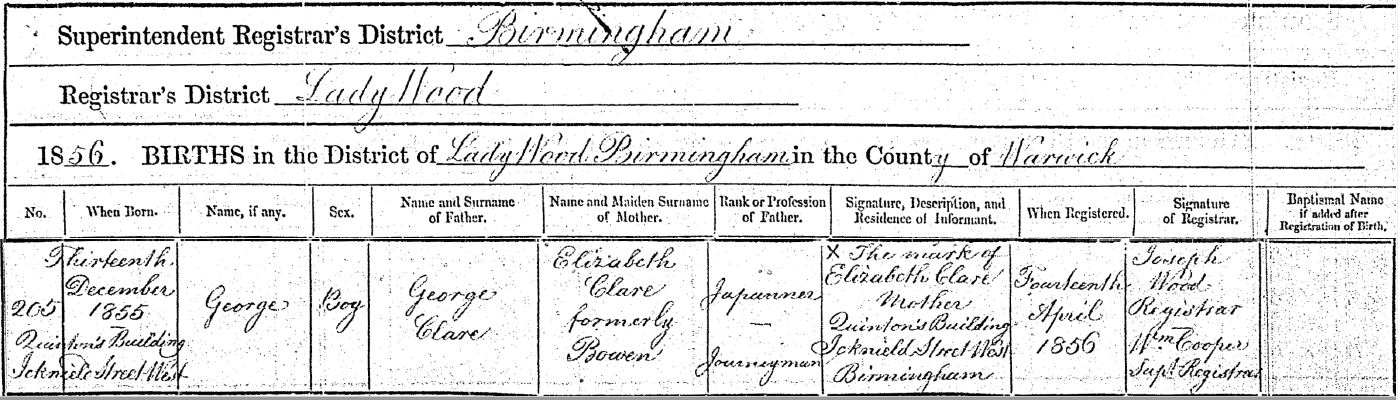 Superintendent Registrar's District Birmingham
Registrar's District Lady Wood
1856. BIRTHS in the District of Lady Wood Birmingham in the County of Warwick
No. When Born. Name, if any. Sex. Name and Surname of Father. Name and Maiden Surname of Mother. Rank or Profession of Father. Signature, Description, and Residence of Informant. When Registered. Signature of Registrar. Baptismal Name if added after Registration of Birth.
205
Thirteenth
December
1855
Quinton's Building
Icknield Street West
George
Boy
George
Clare
Elizabeth
Clare
formerly
Bowen
Japanner
—
Journeyman
X The mark of
Elizabeth Clare
Mother
Quinton's Building
Icknield Street West
Birmingham
Fourteenth
April
1856
Joseph
Wood
Registrar
Wm Cooper
Supt Registrar